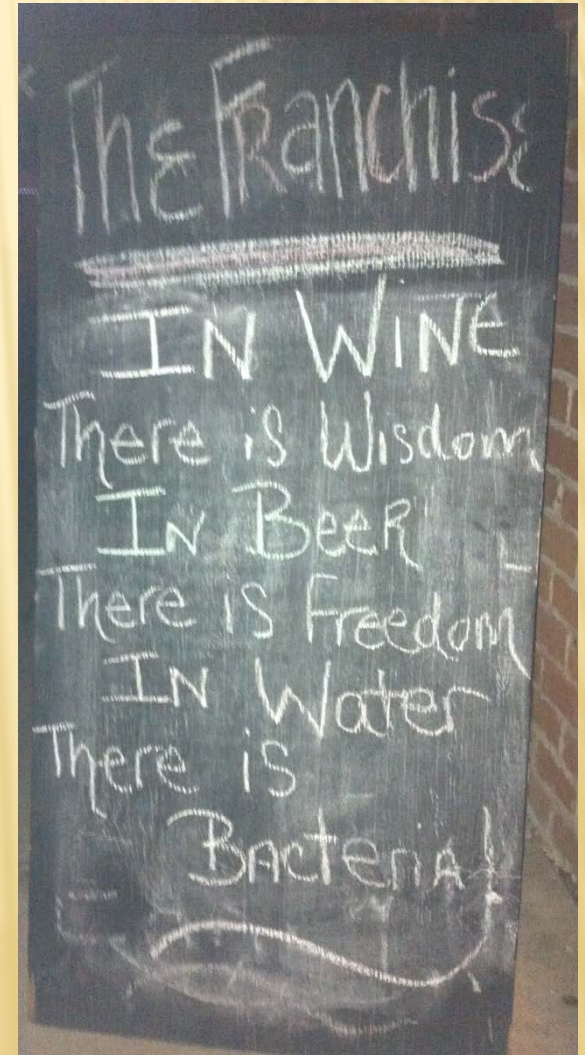 The Franchise
IN WINE
There is Wisdom
In Beer
There is Freedom
IN Water
There is
Bacteria!